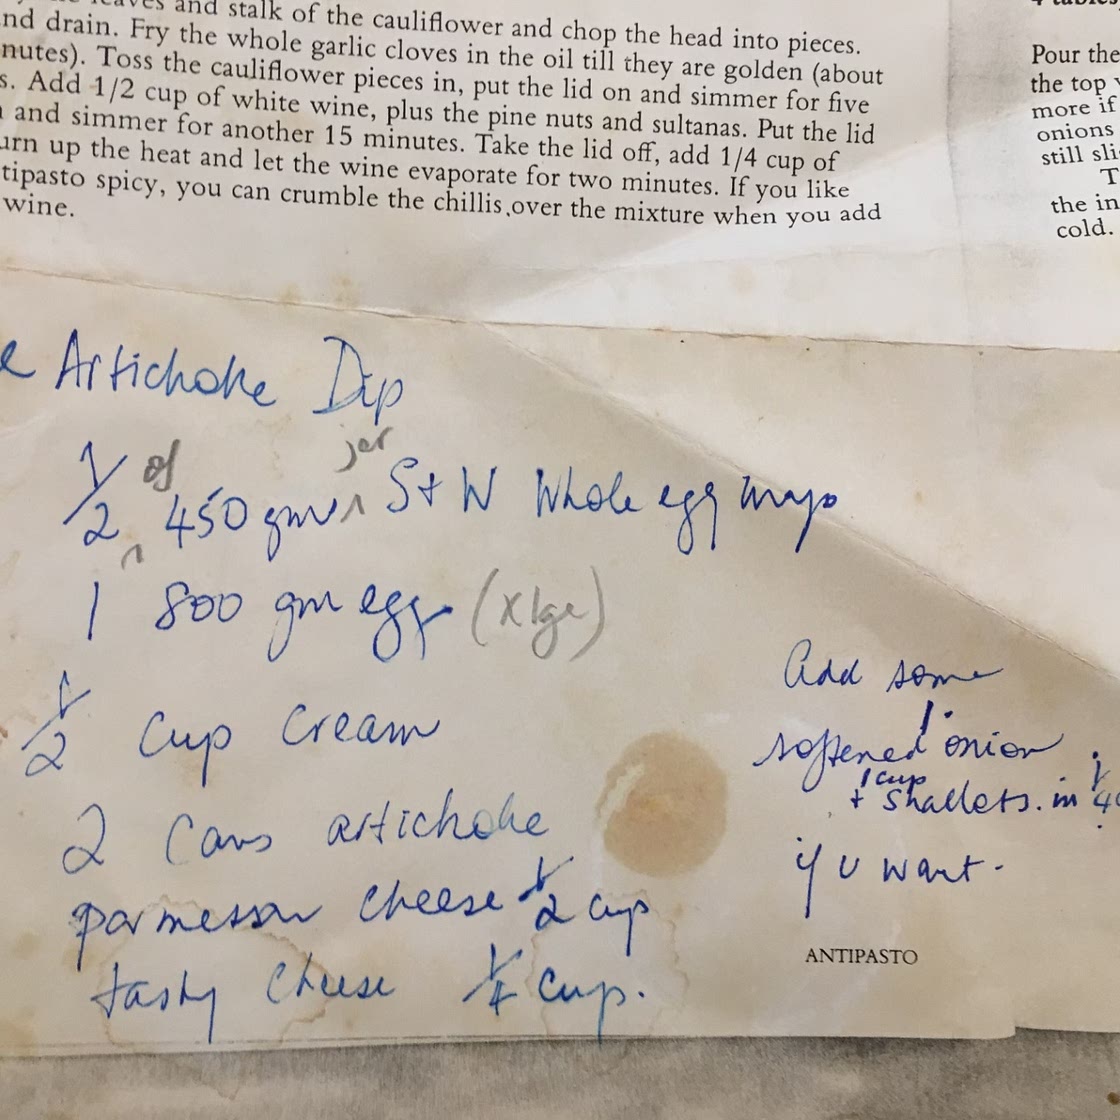 leaves and stalk of the cauliflower and chop the head into pieces.
nd drain. Fry the whole garlic cloves in the oil till they are golden (about
nutes). Toss the cauliflower pieces in, put the lid on and simmer for five
s. Add 1/2 cup of white wine, plus the pine nuts and sultanas. Put the lid
and simmer for another 15 minutes. Take the lid off, add 1/4 cup of
urn up the heat and let the wine evaporate for two minutes. If you like
tipasto spicy, you can crumble the chillis over the mixture when you add
wine.
Pour the
the top
more if
onions
still sli
T
the in
cold.
e Artichoke Dip
1/2 of 450 gm jar S+W Whole egg mayo
1 800 gm egg (xlge)
1/2 cup cream
2 cans artichoke
parmesan cheese 1/2 cup
tasty cheese 1/4 cup.
Add some
softened 1. onion
+ 1 cup shallots. in
if u want.
ANTIPASTO